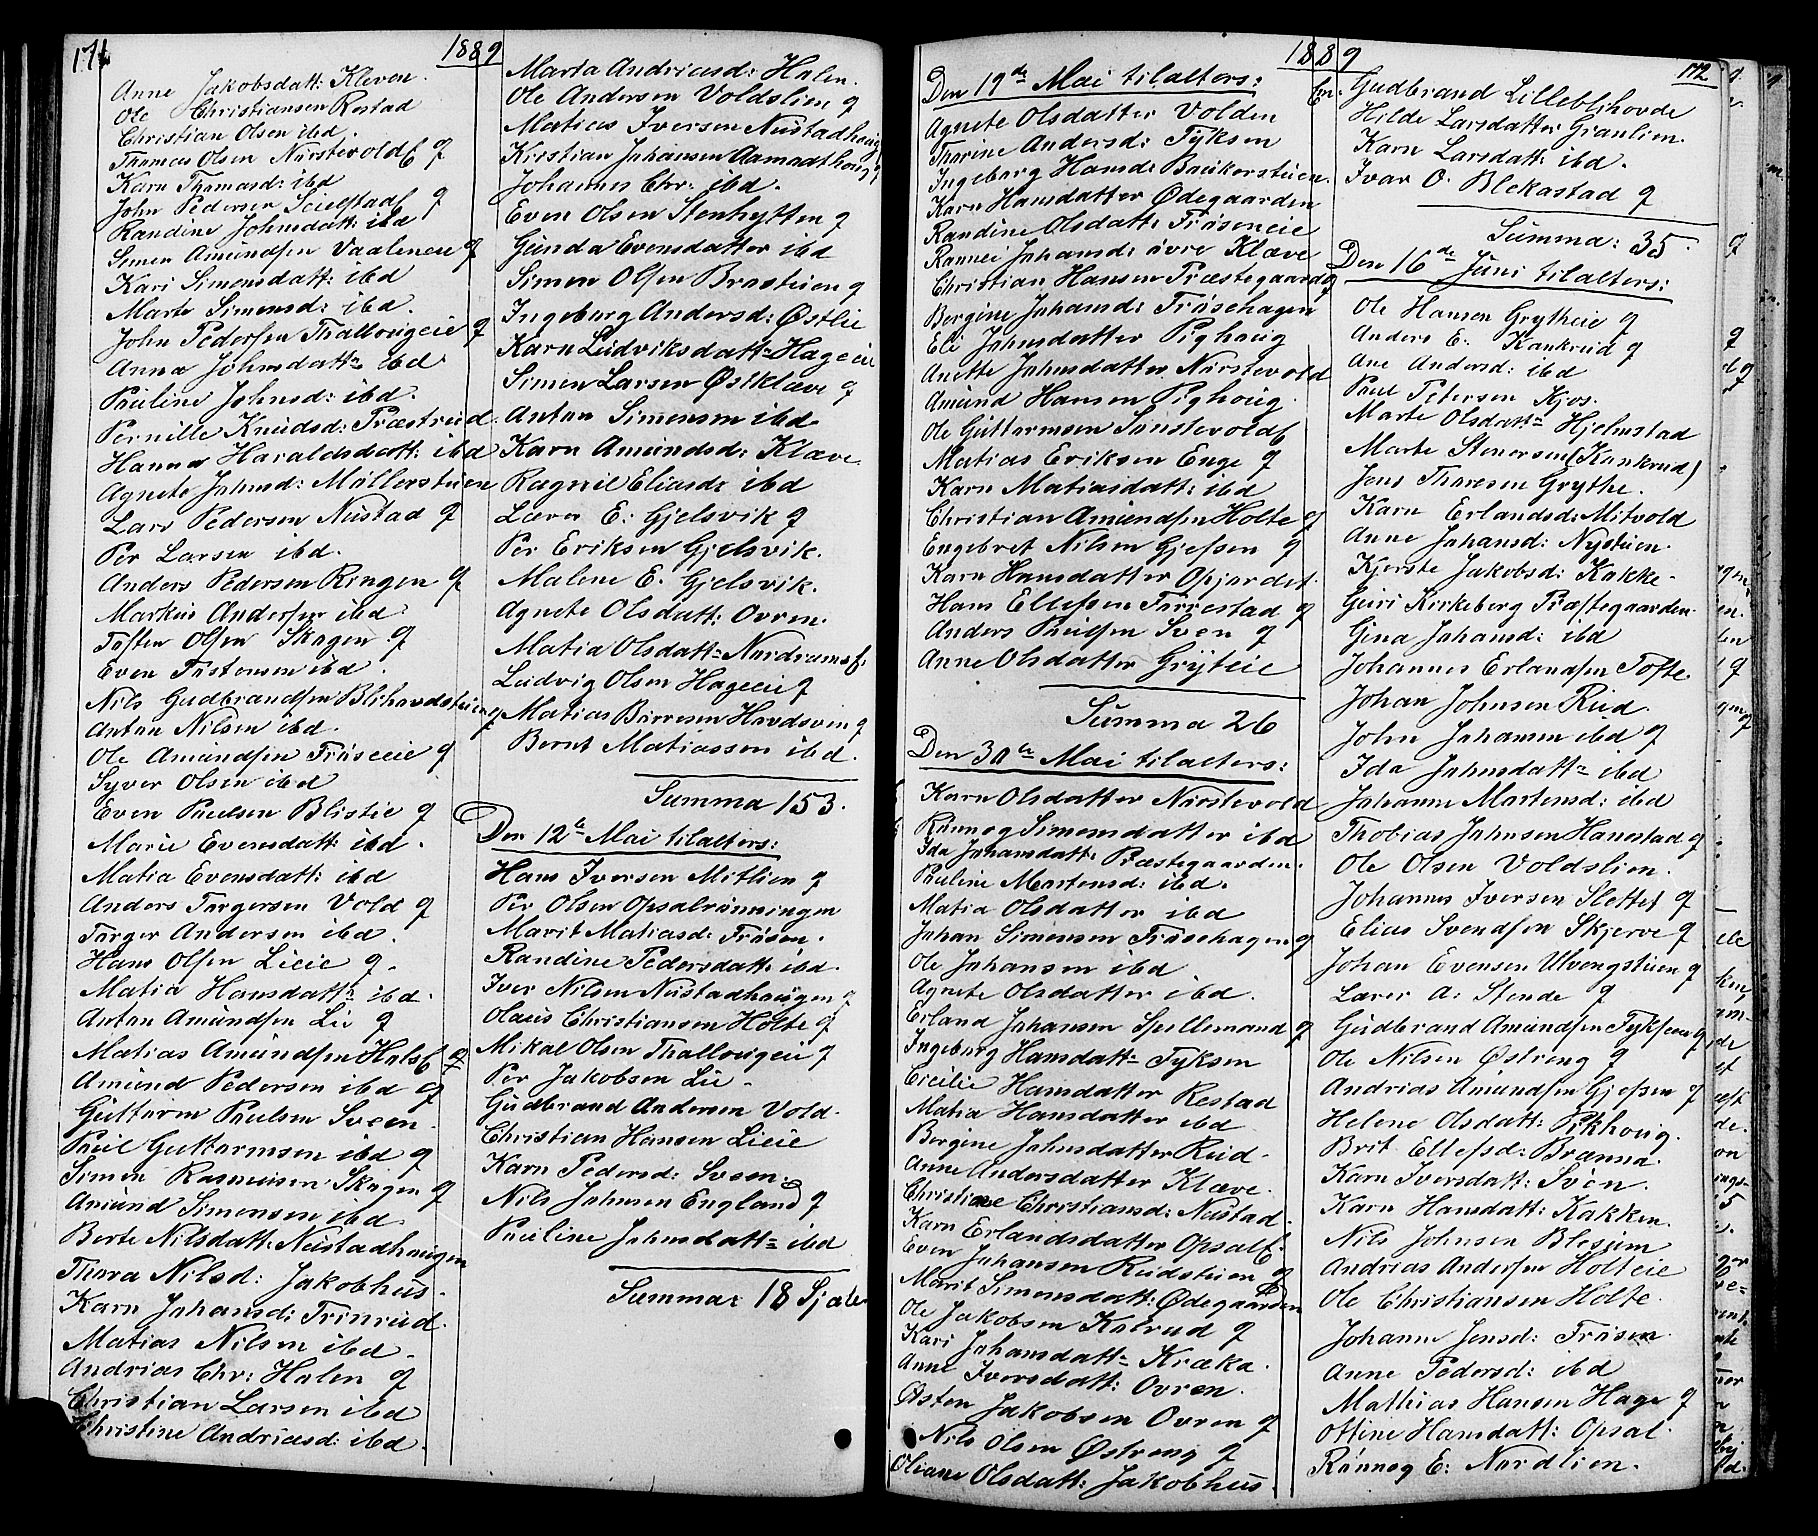 171
1889
Anne Jakobsdatt: Kleven.
Ole Christiansen Rostad
Christian Olsen ibd.
Thomas Olsen Nörstevold g
Karn Thomasd: ibd
John Pedersen Seielstad g
Randine Johnsdatt: ibd
Simen Amundsen Vaaleneie g
Kari Simensdatt: ibd
Marte Simensd: ibd.
John Pedersen Thallougeie g
Anna Johnsdatt= ibd
Pauline Johnsd: ibd.
Pernille Knudsd: Præstrud.
Hanna Haraldsdatt: ibd
Agnete Johnsd: Möllerstuen
Lars Pedersen Nustad g
Per Larsen ibd.
Anders Pedersen Ringen g
Markus Andersen ibd
Tosten Olsen Skogen g
Even Tostensen ibd.
Nils Gudbrandsen Blihovdstuen g
Anton Nilsen ibd.
Ole Amundsen Fröseie g
Syver Olsen ibd
Even Paulsen Blistie g
Marie Evensdatt: ibd.
Matia Evensdatt: ibd
Anders Torgersen Vold g
Torger Andersen ibd.
Hans Olsen Lieie g.
Matia Hansdatt= ibd.
Anton Amundsen Lie g
Matias Amundsen Holsb g
Amund Pedersen ibd g
Guttorm Paulsen Sveen.
Paul Guttormsen ibd g
Simen Rasmusen Skogen g
Amund Simensen ibd.
Berte Nilsdatt: Nustadhaugen
Thora Nilsd: Jakobhus.
Karn Johansd: Trinrud.
Matias Nilsen ibd.
Andrias Chr: Holen g
Christian Larsen ibd
Christine Andriasd: ibd.
Marta Andriasd: Holen.
Ole Andersen Voldslien g
Matias Iversen Nustadhoug
Kirstian Johansen Aamodthoug g
Johannes Chr: ibd.
Even Olsen Stenhytten g
Gunda Evensdatter ibd
Simen Olsen Brostuen g
Ingeborg Andersd: Østlie
Karn Ludviksdatt= Hageeie
Simen Larsen Østklæve g
Anton Simensen ibd
Karn Amundsd: Klæve
Ragnil Eliasd: ibd
Lærer E: Gjelsvik g
Per Eriksen Gjelsvik.
Malene E. Gjelsvik.
Agnete Olsdatt: Ovren.
Matia Olsdatt= Nordramsb.
Ludvig Olsen Hageeie g
Matias Börresen Hovdsvin g
Bernt Matiassen ibd.
Summa 153.
Den 12te Mai tilalters:
Hans Iversen Mitlien g
Per Olsen Opsalrönningen
Marit Matiasd: Frösen.
Randine Pedersdatt: ibd.
Iver Nilsen Nustadhaugen g
Olaus Christiansen Holte g
Mikal Olsen Thallougeie g
Per Jakobsen Lie.
Gudbrand Andersen Vold.
Christian Hansen Lieie
Karn Pedersd: Sveen.
Nils Johnsen England g
Pauline Johnsdatt= ibd
Summa: 18 Sjæle
1889
172
Den 19de Mai tilalters:
Agnete Olsdatter Volden
Thorine Andersd: Tyksen
Ingeborg Hansd: Baukerstuen.
Karn Hansdatter Ødegaarden
Randine Olsdatt: Fröseneie
Rannei Johansd: övre Klæve
Christian Hansen Præstegaard g
Bergine Johansd: Frösehagen
Eli Johnsdatter Pighoug
Anette Johnsdatter Nörstevold
Amund Hansen Pighoug.
Ole Guttormsen Sönstevold
Matias Eriksen Enge g
Karn Matiasdatt: ibd
Christian Amundsen Holte g
Engebret Nilsen Gjessen g
Karn Hansdatter Opjordet.
Hans Ellefsen Törrestad g
Anders Paulsen Sven g
Anne Olsdatter Gryteie
Summa 26
Den 30te Mai tilalters:
Karn Olsdatter Nörstevold
Rönnog Simensdatter ibd
Ida Johansdatt: Præstegaarden.
Pauline Mortensd: ibd.
Matia Olsdatter ibd
Johan Simensen Frösehagen g
Ole Johansen ibd
Agnete Olsdatter ibd.
Erland Johansen Spillemand g
Ingeborg Hansdatt= Tyksen
Cicilie Hansdatter Restad
Matia Hansdatter ibd
Bergine Johnsdatter Rud.
Anne Andersdatter Klæve.
Christine Christiansd: Nustad.
Karn Erlandsdatter Opsal
Even Johansen Rudstuen g
Marit Simensdatt: Ødegaarden
Ole Jakobsen Kolrud g
Kari Johansdatt= Kræka.
Anne Iversdatt: Ovren.
Østen Jakobsen Ovren g
Nils Olsen Østreng g
Oliane Olsdatt: Jakobhus.
Gudbrand Lilleblihovde
Hilde Larsdatter Granlien.
Karn Larsdatt: ibd.
Ivar O. Blekastad g
Summa: 35.
Den 16de Juni tilalters:
Ole Hansen Grytheie g
Anders E. Kankrud g
Ane Andersd: ibd
Paul Petersen Kjos.
Marte Olsdatt= Hjelmstad
Marte Stenersen (Kankrud)
Jens Thoresen Grythe.
Karn Erlandsd: Mitvold
Anne Johansd: Nystuen.
Kjerste Jakobsd: Kakke.
Guri Kirkeberg Præstegaarden.
Gina Johansd: ibd
Johannes Erlandsen Tofte.
Johan Johnsen Rud.
John Johansen ibd g
Ida Johnsdatt= ibd
Johanne Mortensd: ibd
Thobias Johnsen Hanestad g
Ole Olsen Voldslien.
Johannes Iversen Slettes g
Elias Svendsen Skjerve g
Johan Evensen Ulvengstuen g
Lærer A. Stende g
Gudbrand Amundsen Tyksen g
Ole Nilsen Østreng g
Andrias Amundsen Gjessen g
Helene Olsdatt: Pikhoug.
Brit Ellefsd: Brænna.
Karn Iversdatt: Svén.
Karn Hansdatt: Kakken.
Nils Johnsen Blesum
Andrias Andersen Holteie
Ole Christiansen Holte.
Johanne Jensd: Frösen.
Anne Pedersd: ibd
Mathias Hansen Hage g
Ottine Hansdatt: Opsal.
Rönnog E: Nordlien.